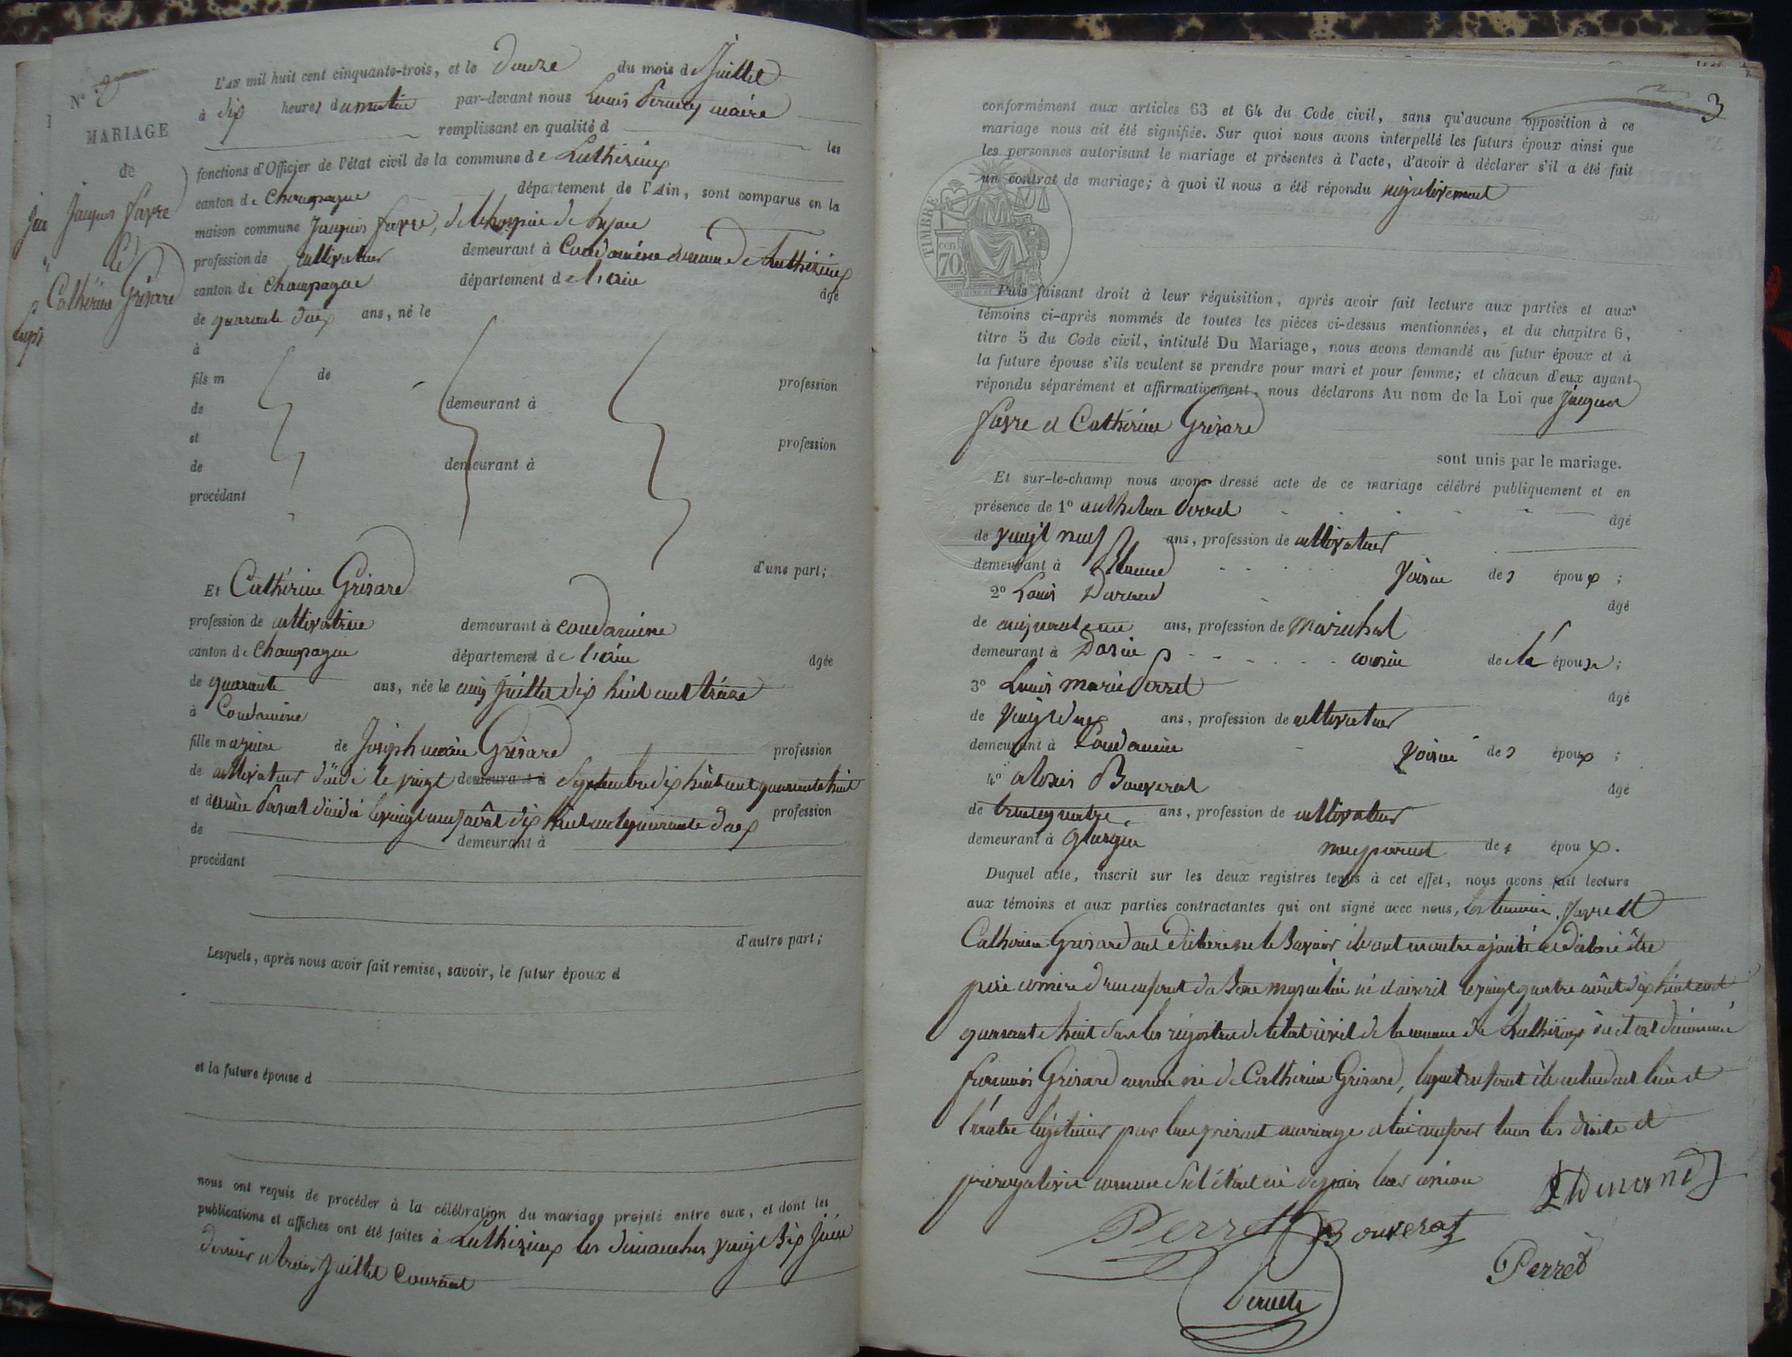 N° 2
MARIAGE
de
Jacques Favre
et
Catherine Grisard
L'AN mil huit cent cinquante-trois, et le douze du mois de Juillet
à dix heures du matin par-devant nous Louis maire
remplissant en qualité d les
fonctions d'Officier de l'état civil de la commune de Luthézieu
canton de Champagne département de l'Ain, sont comparus en la
maison commune Jacques Favre, de l'hospice de
profession de cultivateur demeurant à Condamine commune de Luthézieu
canton de Champagne département de l'ain âgé
de quarante deux ans, né le
à
fils m de profession
de demeurant à
et profession
de demeurant à
procédant
d'une part;
Et Cathérine Grisard
profession de cultivatrice demeurant à Condamine
canton de Champagne département de l'ain âgée
de quarante ans, née le cinq Juillet dix huit cent treize
à Condamine
fille majeure de Joseph marie Grisard profession
de cultivateur décédé le vingt demeurant à Septembre dix huit cent quarante huit
et d décédé le vingt neuf août dix huit cent quarante deux profession
de demeurant à
procédant
d'autre part;
Lesquels, après nous avoir fait remise, savoir, le futur époux d
et la future épouse d
nous ont requis de procéder à la célébration du mariage projeté entre eux, et dont les
publications et affiches ont été faites à Luthézieu les dimanches vingt six Juin
dernier et trois Juillet courant
3
conformément aux articles 63 et 64 du Code civil, sans qu'aucune opposition à ce
mariage nous ait été signifiée. Sur quoi nous avons interpellé les futurs époux ainsi que
les personnes autorisant le mariage et présentes à l'acte, d'avoir à déclarer s'il a été fait
un contrat de mariage; à quoi il nous a été répondu négativement
TIMBRE
70
Puis faisant droit à leur réquisition, après avoir fait lecture aux parties et aux
témoins ci-après nommés de toutes les pièces ci-dessus mentionnées, et du chapitre 6,
titre 5 du Code civil, intitulé Du Mariage, nous avons demandé au futur époux et à
la future épouse s'ils veulent se prendre pour mari et pour femme; et chacun d'eux ayant
répondu séparément et affirmativement, nous déclarons Au nom de la Loi que Jacques
Favre et Cathérine Grisard
sont unis par le mariage.
Et sur-le-champ nous avons dressé acte de ce mariage célébré publiquement et en
présence de 1° anthelme Perret âgé
de vingt neuf ans, profession de cultivateur
demeurant à voisin des époux;
2° Louis Durand âgé
de cinquante un ans, profession de Maréchal
demeurant à cousin de la épouse;
3° Louis marie Perret âgé
de vingt deux ans, profession de cultivateur
demeurant à Condamine voisin des époux;
4° alexis Bouverat âgé
de trente quatre ans, profession de cultivateur
demeurant à non parent des époux.
Duquel acte, inscrit sur les deux registres tenus à cet effet, nous avons fait lecture
aux témoins et aux parties contractantes qui ont signé avec nous, les témoins, favre et
Catherine Grisard ont déclaré ne le Savoir ils ont en outre ajouté et déclaré être
père et mère d'un enfant du Sexe masculin né et inscrit le vingt quatre août dix huit cent
quarante huit dans les régistres de l'état civil de la commune de Luthézieu où il est dénommé
françois Grisard comme né de Catherine Grisard, lequel enfant ils entendent l'un et
l'autre légitimer par leur présent mariage et lui conférer tous les droits et
prérogatives comme S'il était né depuis leur union
LDurand
Perret Bouverat
Perret